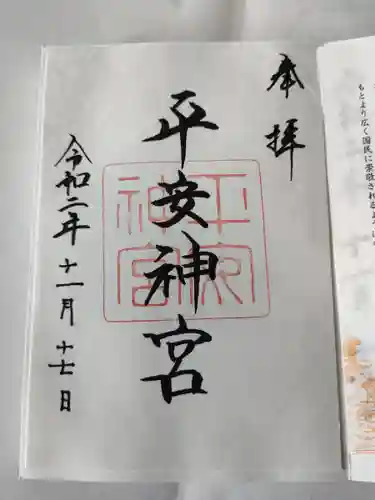 奉拝
平安神宮
平安神宮
令和二年十一月十七日
もとより広く国民に崇敬されるよ